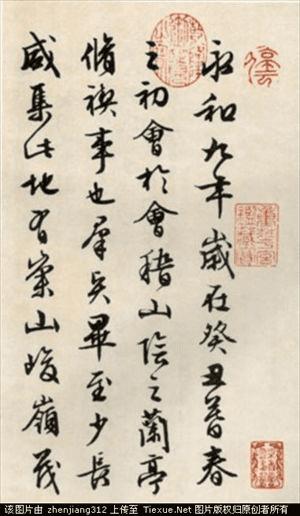 永和九年歲在癸丑暮春
之初會於會稽山陰之蘭亭
脩禊事也羣賢畢至少長
咸集此地有崇山峻嶺茂
该图片由 zhenjiang312 上传至 Tiexue.Net 图片版权归原创者所有